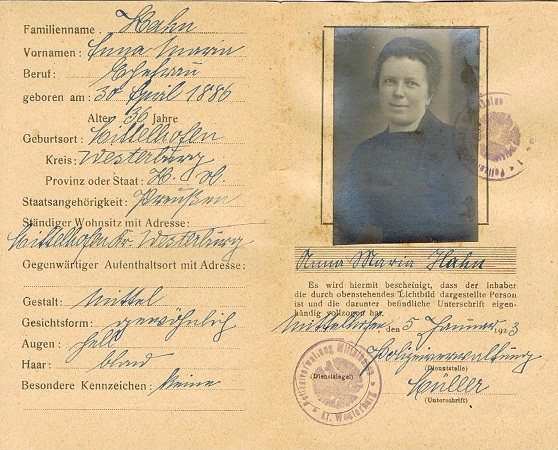 Familienname : Hahn
Vornamen : Anna Maria
Beruf : Ehefrau
geboren am : 30 April 1886
Alter 36 Jahre
Geburtsort : Mittelhofen
Kreis : Westerburg
Provinz oder Staat : H. N.
Staatsangehörigkeit : Preußen
Ständiger Wohnsitz mit Adresse :
Mittelhofen Kr. Westerburg
Gegenwärtiger Aufenthaltsort mit Adresse :
Gestalt : Mittel
Gesichtsform : gewöhnlich
Augen : hell
Haar : blond
Besondere Kennzeichen : keine
Anna Maria Hahn
Es wird hiermit bescheinigt, dass der Inhaber
die durch obenstehendes Lichtbild dargestellte Person
ist und die darunter befindliche Unterschrift eigen-
händig vollzogen hat.
Mittelhofen den 5 Januar 1923
Polizeiverwaltung
(Dienststelle)
(Dienstsiegel)
Müller
(Unterschrift)